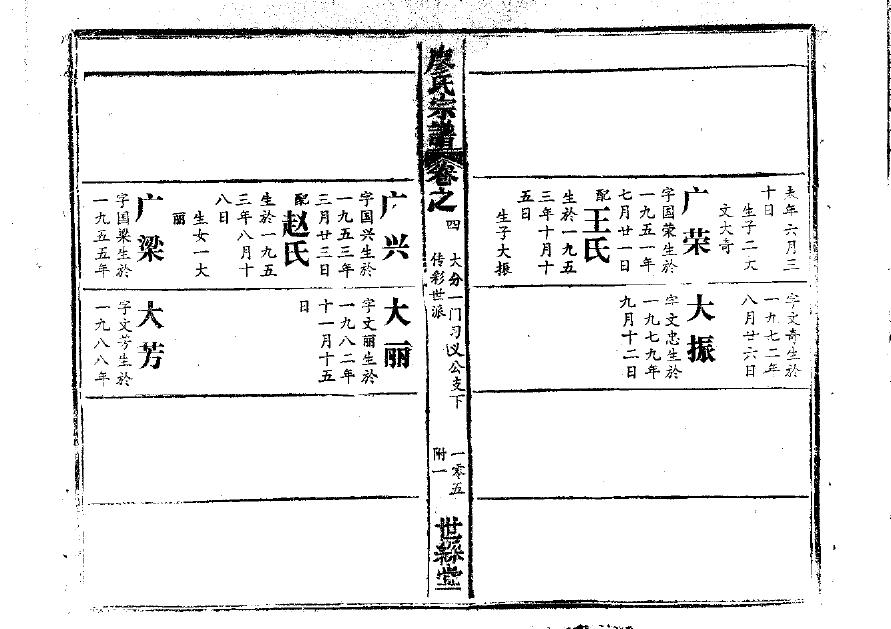 未年六月三
十日
生子二大
文大奇
广荣
字国荣生於
一九五一年
七月廿一日
配
王氏
生於一九五
三年十月十
五日
生子大振
字文奇生於
一九七二年
八月廿六日
大振
字文忠生於
一九七九年
九月十二日
廖氏宗譜
卷之
四
大分一门习议公支下
传彩世派
一零五
附一
世綵堂
广兴
字国兴生於
一九五三年
三月廿三日
配
赵氏
生於一九五
三年八月十
八日
生女一大
丽
广梁
字国梁生於
一九五五年
大丽
字文丽生於
一九八二年
十一月十五
日
大芳
字文芳生於
一九八八年